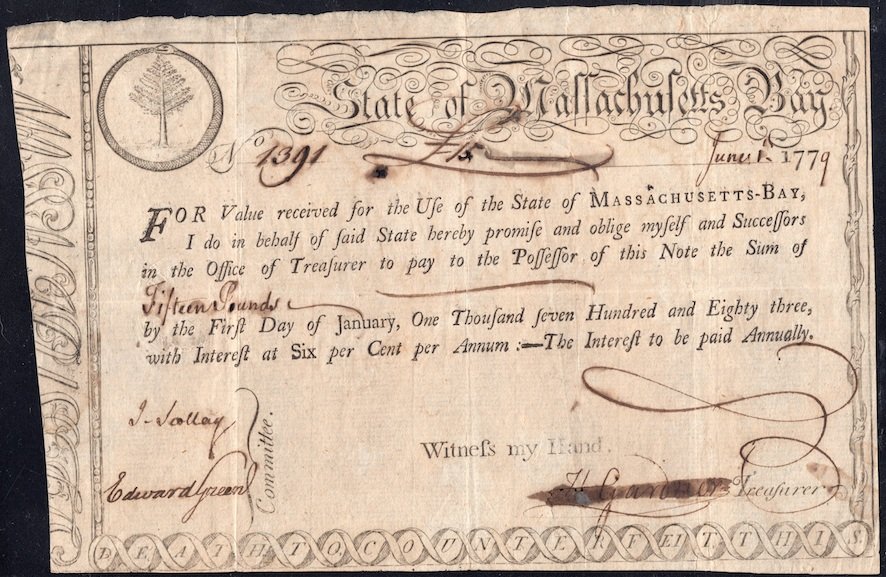 State of Maſſachuſetts Bay
No 1391 £15 June 1. 1779
FOR Value received for the Uſe of the State of MASSACHUSETTS-BAY,
I do in behalf of ſaid State hereby promiſe and oblige myſelf and Succeſſors
in the Office of Treaſurer to pay to the Poſſeſſor of this Note the Sum of
Fifteen Pounds
by the Firſt Day of January, One Thouſand ſeven Hundred and Eighty three,
with Intereſt at Six per Cent per Annum :—The Intereſt to be paid Annually.
J. Scollay
Committee.
Witneſs my Hand.
Edward Green
H Gardner Treaſurer
DEATH TO COUNTERFEIT THIS.